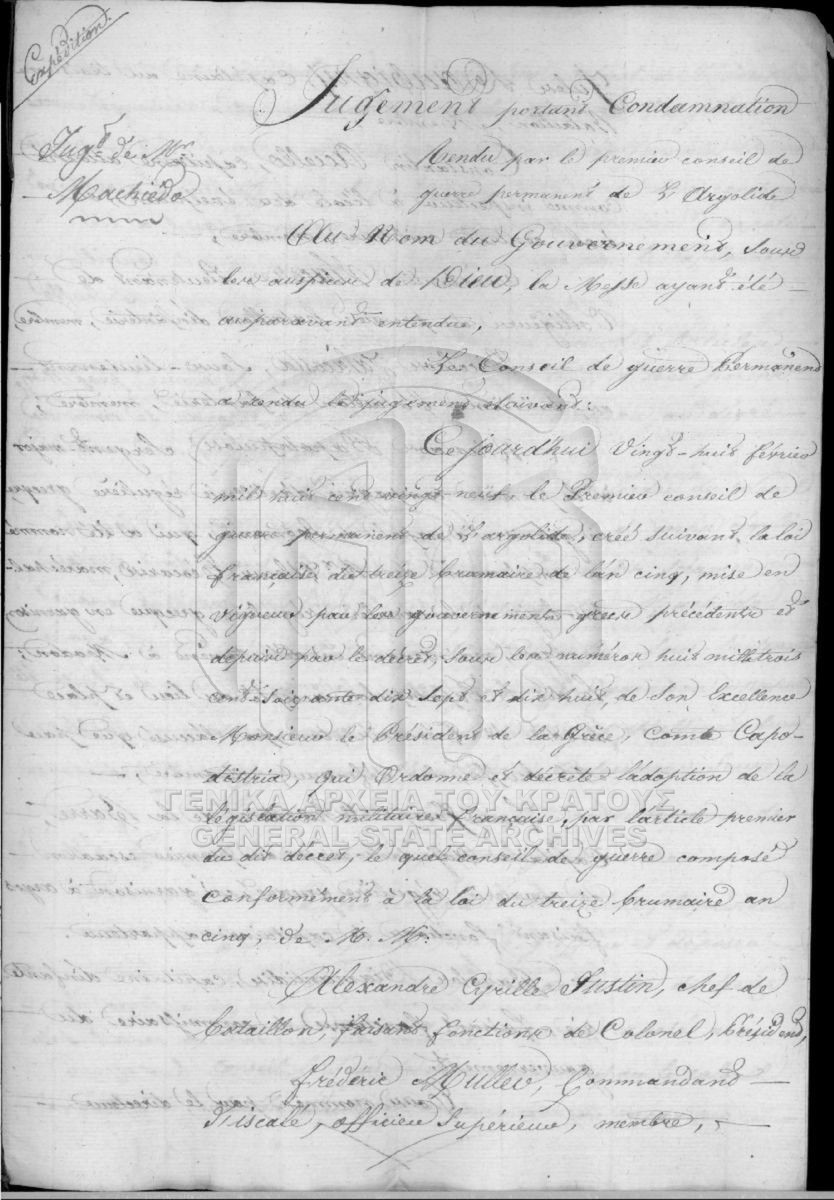 Expédition.
Jugement portant Condamnation
Jugt de Mr
Machiedo
Rendu par le premier conseil de
guerre permanent de L'Argolide
Au Nom du Gouvernement, sous
les auspices de Dieu, la Messe ayant été
auparavant entendue,
Le Conseil de guerre Permanend
a rendu le jugement suivant:
Cejourd'hui vingt-huit février
mil huit cent vingt-neuf, le Premier conseil de
guerre permanent de L'argolide, créé suivant la loi
française du treize brumaire de l'an cinq, mise en
vigueur par les gouvernements grecs précédents et
depuis par le décret, sous les numéros huit mille trois
cent soixante dix sept et dix huit, de Son Excellence
Monsieur le Président de la Grèce, Comte Capo-
distria, qui Ordonne et décrète l'adoption de la
législation militaire française, par l'article premier
du dit décret, le quel conseil de guerre composé
conformément à la loi du treize brumaire an
cinq, de M. Mr.
Alexandre Cyrille Justin, chef de
bataillon, faisant fonctions de Colonel, Présidend,
frédéric Muller, Commandand
officier Supérieur, membre,
ΓΕΝΙΚΑ ΑΡΧΕΙΑ ΤΟΥ ΚΡΑΤΟΥΣ
GENERAL STATE ARCHIVES